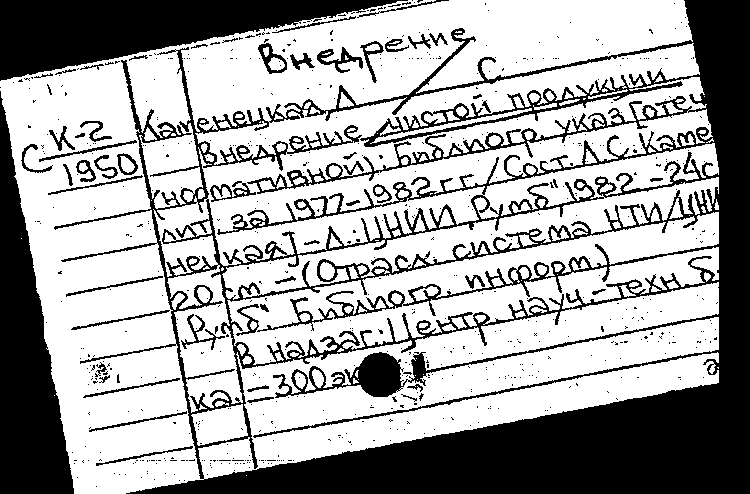 Внедрение
С
С К-2
1950
Каменецкая, Л
Внедрение чистой продукции
(нормативной): Библиогр. указ [отеч
лит. за 1977-1982 г.г. / Сост. Л.С. Каме
нецкая] - Л.: ЦНИИ „Румб", 1982 - 24с
20 см. - (Отрасл. система НТИ/ЦНИ
„Румб". Библиогр. информ.)
В надзаг.: Центр. науч.-техн. б
ка. - 300 эк